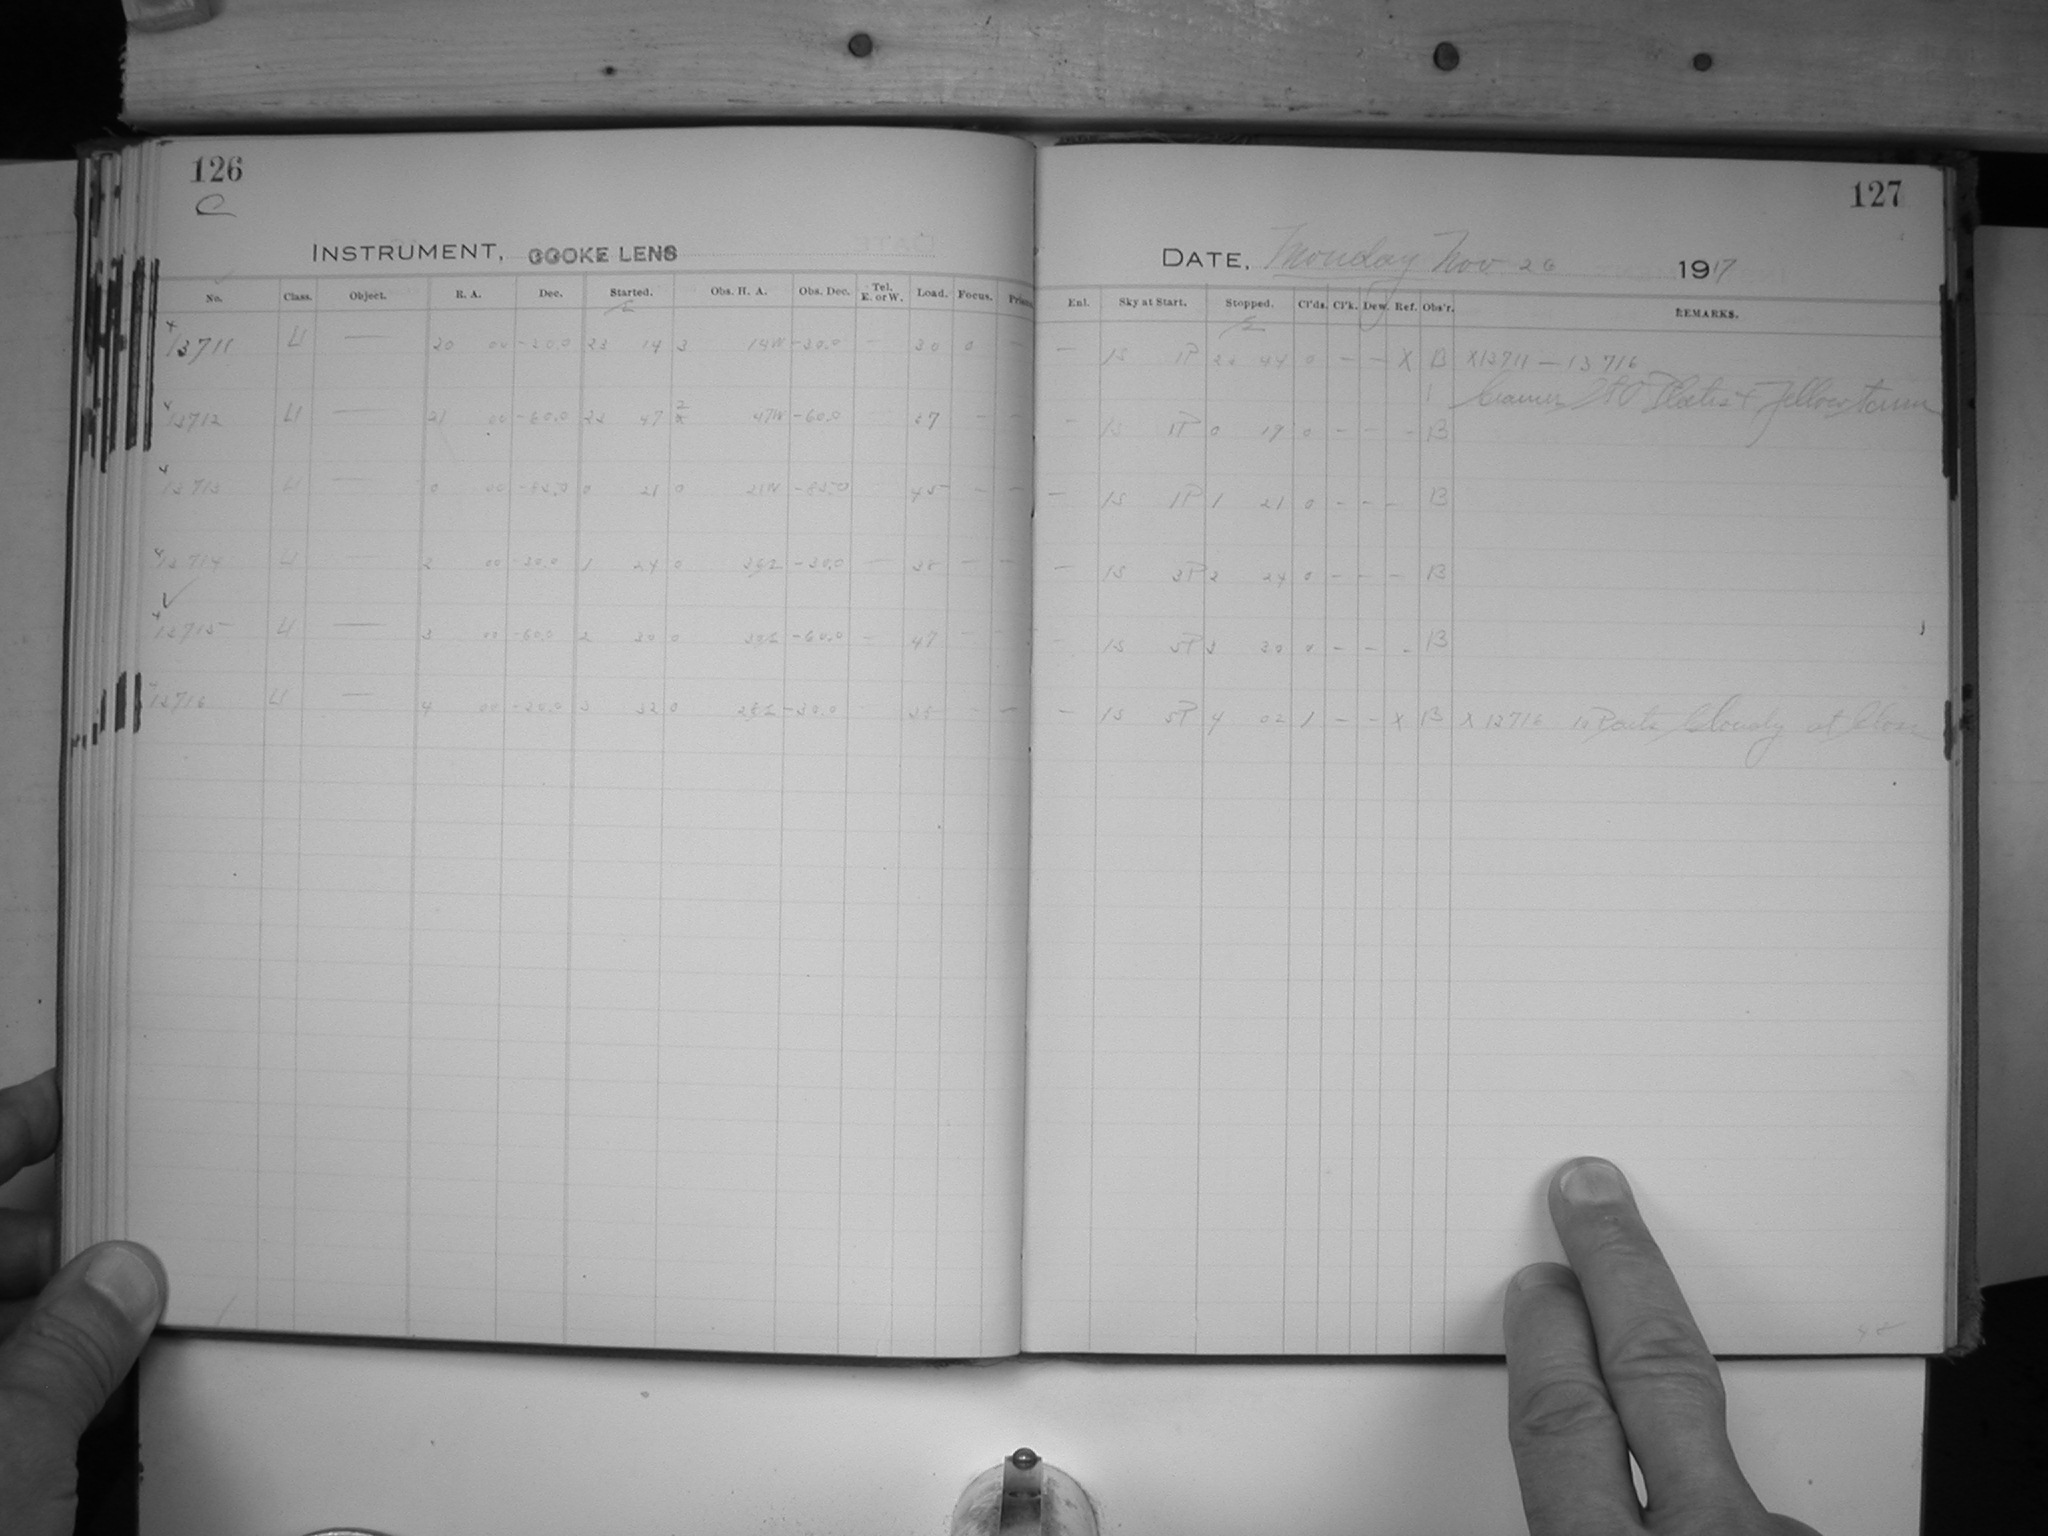 126
127
C
INSTRUMENT, COOKE LENS
DATE, Monday Nov 26 1917
No. Class. Object. R. A. Dec. Started. Obs. H. A. Obs. Dec. Tel. E. or W. Load. Focus. Prism
Enl. Sky at Start. Stopped. Cl'ds. Cl'k. Dew. Ref. Obs'r. REMARKS.
13711 U — 20 00 -30.0 23 14 3 14W -30.0 — 30 0 — — 1S 1P 23 44 0 — — X B X 13711 — 13716
Cramer Plates + Yellow
13712 U — 21 00 -60.0 23 47 47W -60.0 37 - - - 1S 1P 0 19 0 - - - B
13713 U — 0 00 0 21 0 21W 45 - - - 1S 1P 1 21 0 - - - B
13714 U — 2 00 -30.0 1 24 0 36E -30.0 — 38 - - - 1S 3P 2 24 0 - - - B
13715 U — 3 00 -60.0 2 30 0 30E -60.0 - 47 - - 1S 5P 3 30 0 - - - B
13716 U — 4 00 -30.0 3 32 0 28E -30.0 - - - 1S 5P 4 02 1 - - X B X 13716 Cloudy at Close